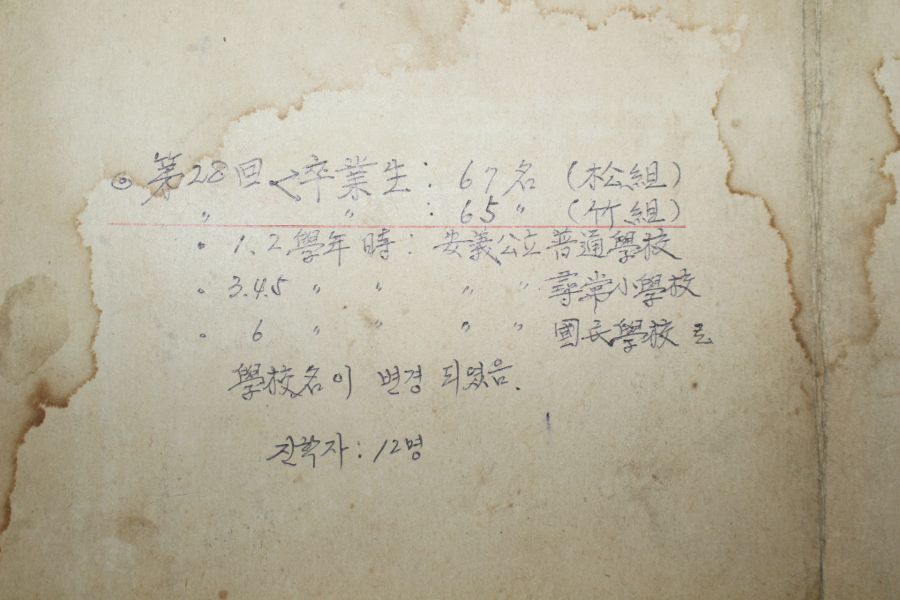 ◎ 第28回 < 卒業生 : 67名 (松組)
〃 〃 : 65 〃 (竹組)
• 1. 2. 學年 時 : 安義公立 普通學校
• 3.4.5 〃 〃 〃 〃 尋常小學校
• 6 〃 〃 〃 〃 國民學校 로
學校名이 변경 되였음.
: 12명